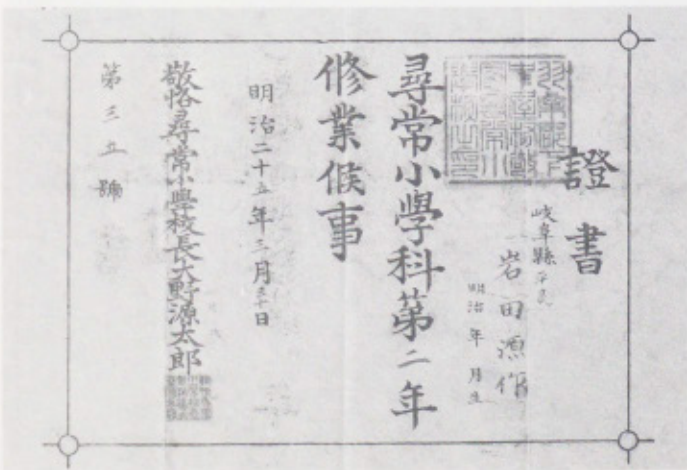 證書
岐阜縣平民
岩田漁作
明治 年 月生
尋常小學科第二年
修業候事
明治二十五年三月 日
敬恪尋常小學校長大野源太郎
第三五號